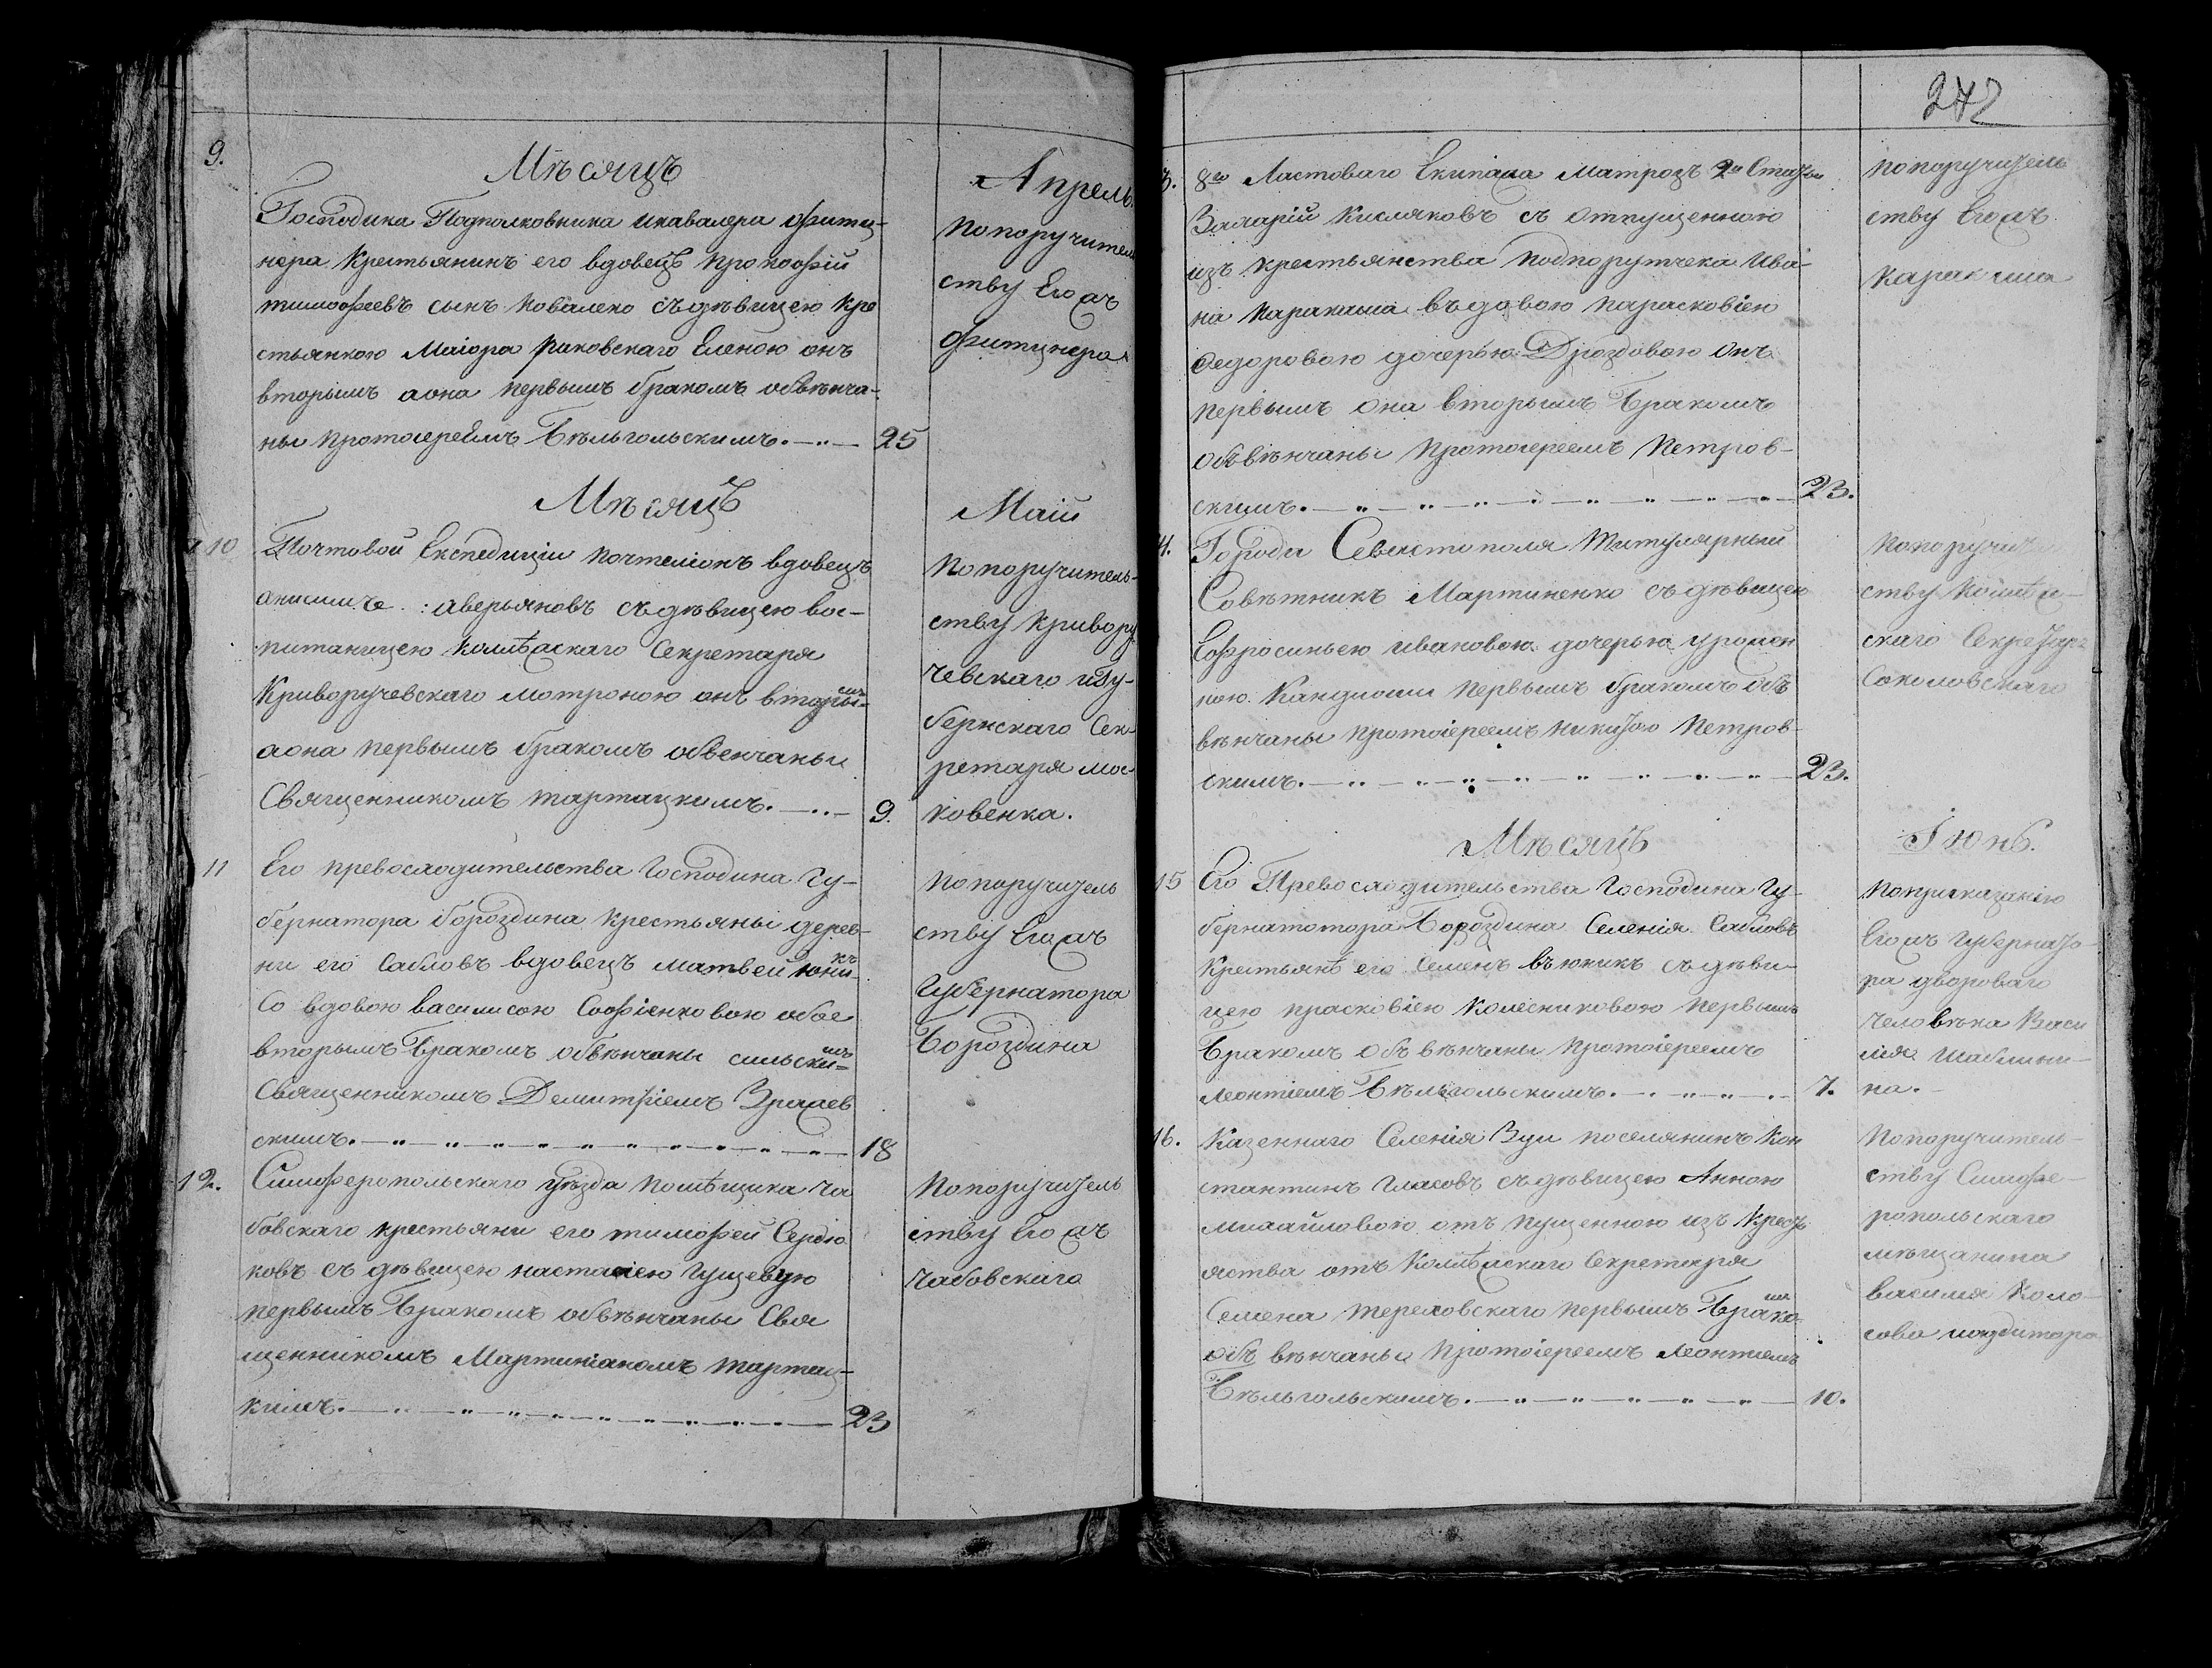 9.
Мѣсяцъ
Апрель.
Господина Подполковника икавалера Фити-
нера крестьянинъ его вдовецъ прокофій
тимофеевъ сынъ коваленко съдѣвицею кре
стьянкою Маіора раковскаго Еленою онъ
вторымъ аона первымъ бракомъ обвѣнча-
ны протоіереемъ Бѣльгольскимъ. 25
попоручитель
ству Его жъ
Фитинера
Мѣсяцъ
Маій
10
Почтовой Експедиціи почталіонъ вдовецъ
аверьяновъ съдѣвицею вос-
питаницею Колѣжскаго Секретаря
Криворучевскаго мотроною онъ вторы-мъ
аона первымъ бракомъ обвенчаны
Священникомъ тартацкимъ. 9.
Попоручитель-
ству кривору
чевскаго игу-
бернскаго Сек-
ретаря мос-
ковенка.
11
Его превосходительства Господина Гу-
бернатора бороздина крестьяны дерев-
ни его Сабловъ вдовецъ матвей
Со вдовою василисою Софіенковою обое
вторымъ Бракомъ обвѣнчаны сильски=мъ
Священникомъ Демитріемъ Зражев
скимъ. 18
попоручитель
ству Его жъ
Губернатора
Бороздина
12.
Симферопольскаго уѣзда помѣщика ча
бовскаго крестьяни его тимофей Сердю
ковъ съ дѣвицею настасіею Гущевую
первымъ Бракомъ обвѣнчаны Свя
щенникомъ Мартиніаномъ тартац-
кимъ. 23
Попоручитель
ству Его жъ
чабовскаго
242
3.
8го Ластоваго Екипажа Матрозъ 2й Статьи
Валарій Кисляковъ съ отпущенною
изъ крестьянства подпорутчека Ива-
на каракаша въдовою парасковіею
Федоровою дочерью Дроздовою онъ
первымъ она вторымъ Бракомъ
объвѣнчаны протоіереемъ Петров-
скимъ. 23.
попоручитель
ству Его жъ
каракаша
4.
Города Севастополя Титулярный
Совѣтникъ Мартиненко съдѣвицею
Еофросиньею ивановою дочерью урожен
ною Кандиоти первымъ бракомъ объ
вѣнчаны протоіереемъ никитою Петров-
скимъ. 23.
попоручит
ству Колѣж-
скаго Секретаря
Соколовскаго
Мѣсяцъ
Іюнь.
15
Его Превосходительства Господина Гу-
бернатотора Бороздина Селенія Сабловъ
Крестьянъ его Семенъ въюникъ съдѣви-
цею прасковіею Колесниковою первымъ
Бракомъ объвѣнчаны протоіереемъ
Леонтіемъ Бѣльгольскимъ. 7.
поприказанію
Его жъ губернато-
ра двороваго
человѣка Васи
лія Шаблыки-
на.
16.
Казеннаго Селенія Зуи поселянинъ Кон
стантинъ Гласовъ съдѣвицею Анною
михайловою отъ пущенною изъ Крестья
яства отъ Колѣжскаго Секретаря
Семена тереховскаго первымъ Брако-мъ
объ вѣнчаны протоіереемъ Леонтіемъ
Бѣльгольскимъ. 10.
Попоручитель-
ству Симфе-
ропольскаго
мѣщанина
василия Коло-
сова